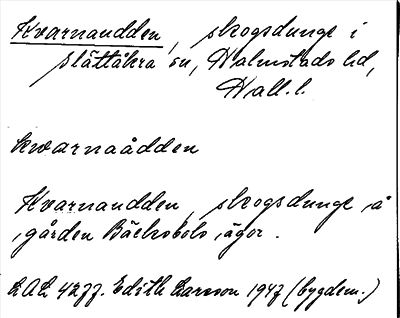 Kvarnaudden, skogsdunge i
Slättåkra sn, Halmstads hd,
Hall. l.
kwarnaådden
Kvarnaudden, skogsdunge å
gården Bäckabols ägor.
LAL 4277. Edith Larsson 1947 (bygdem.)